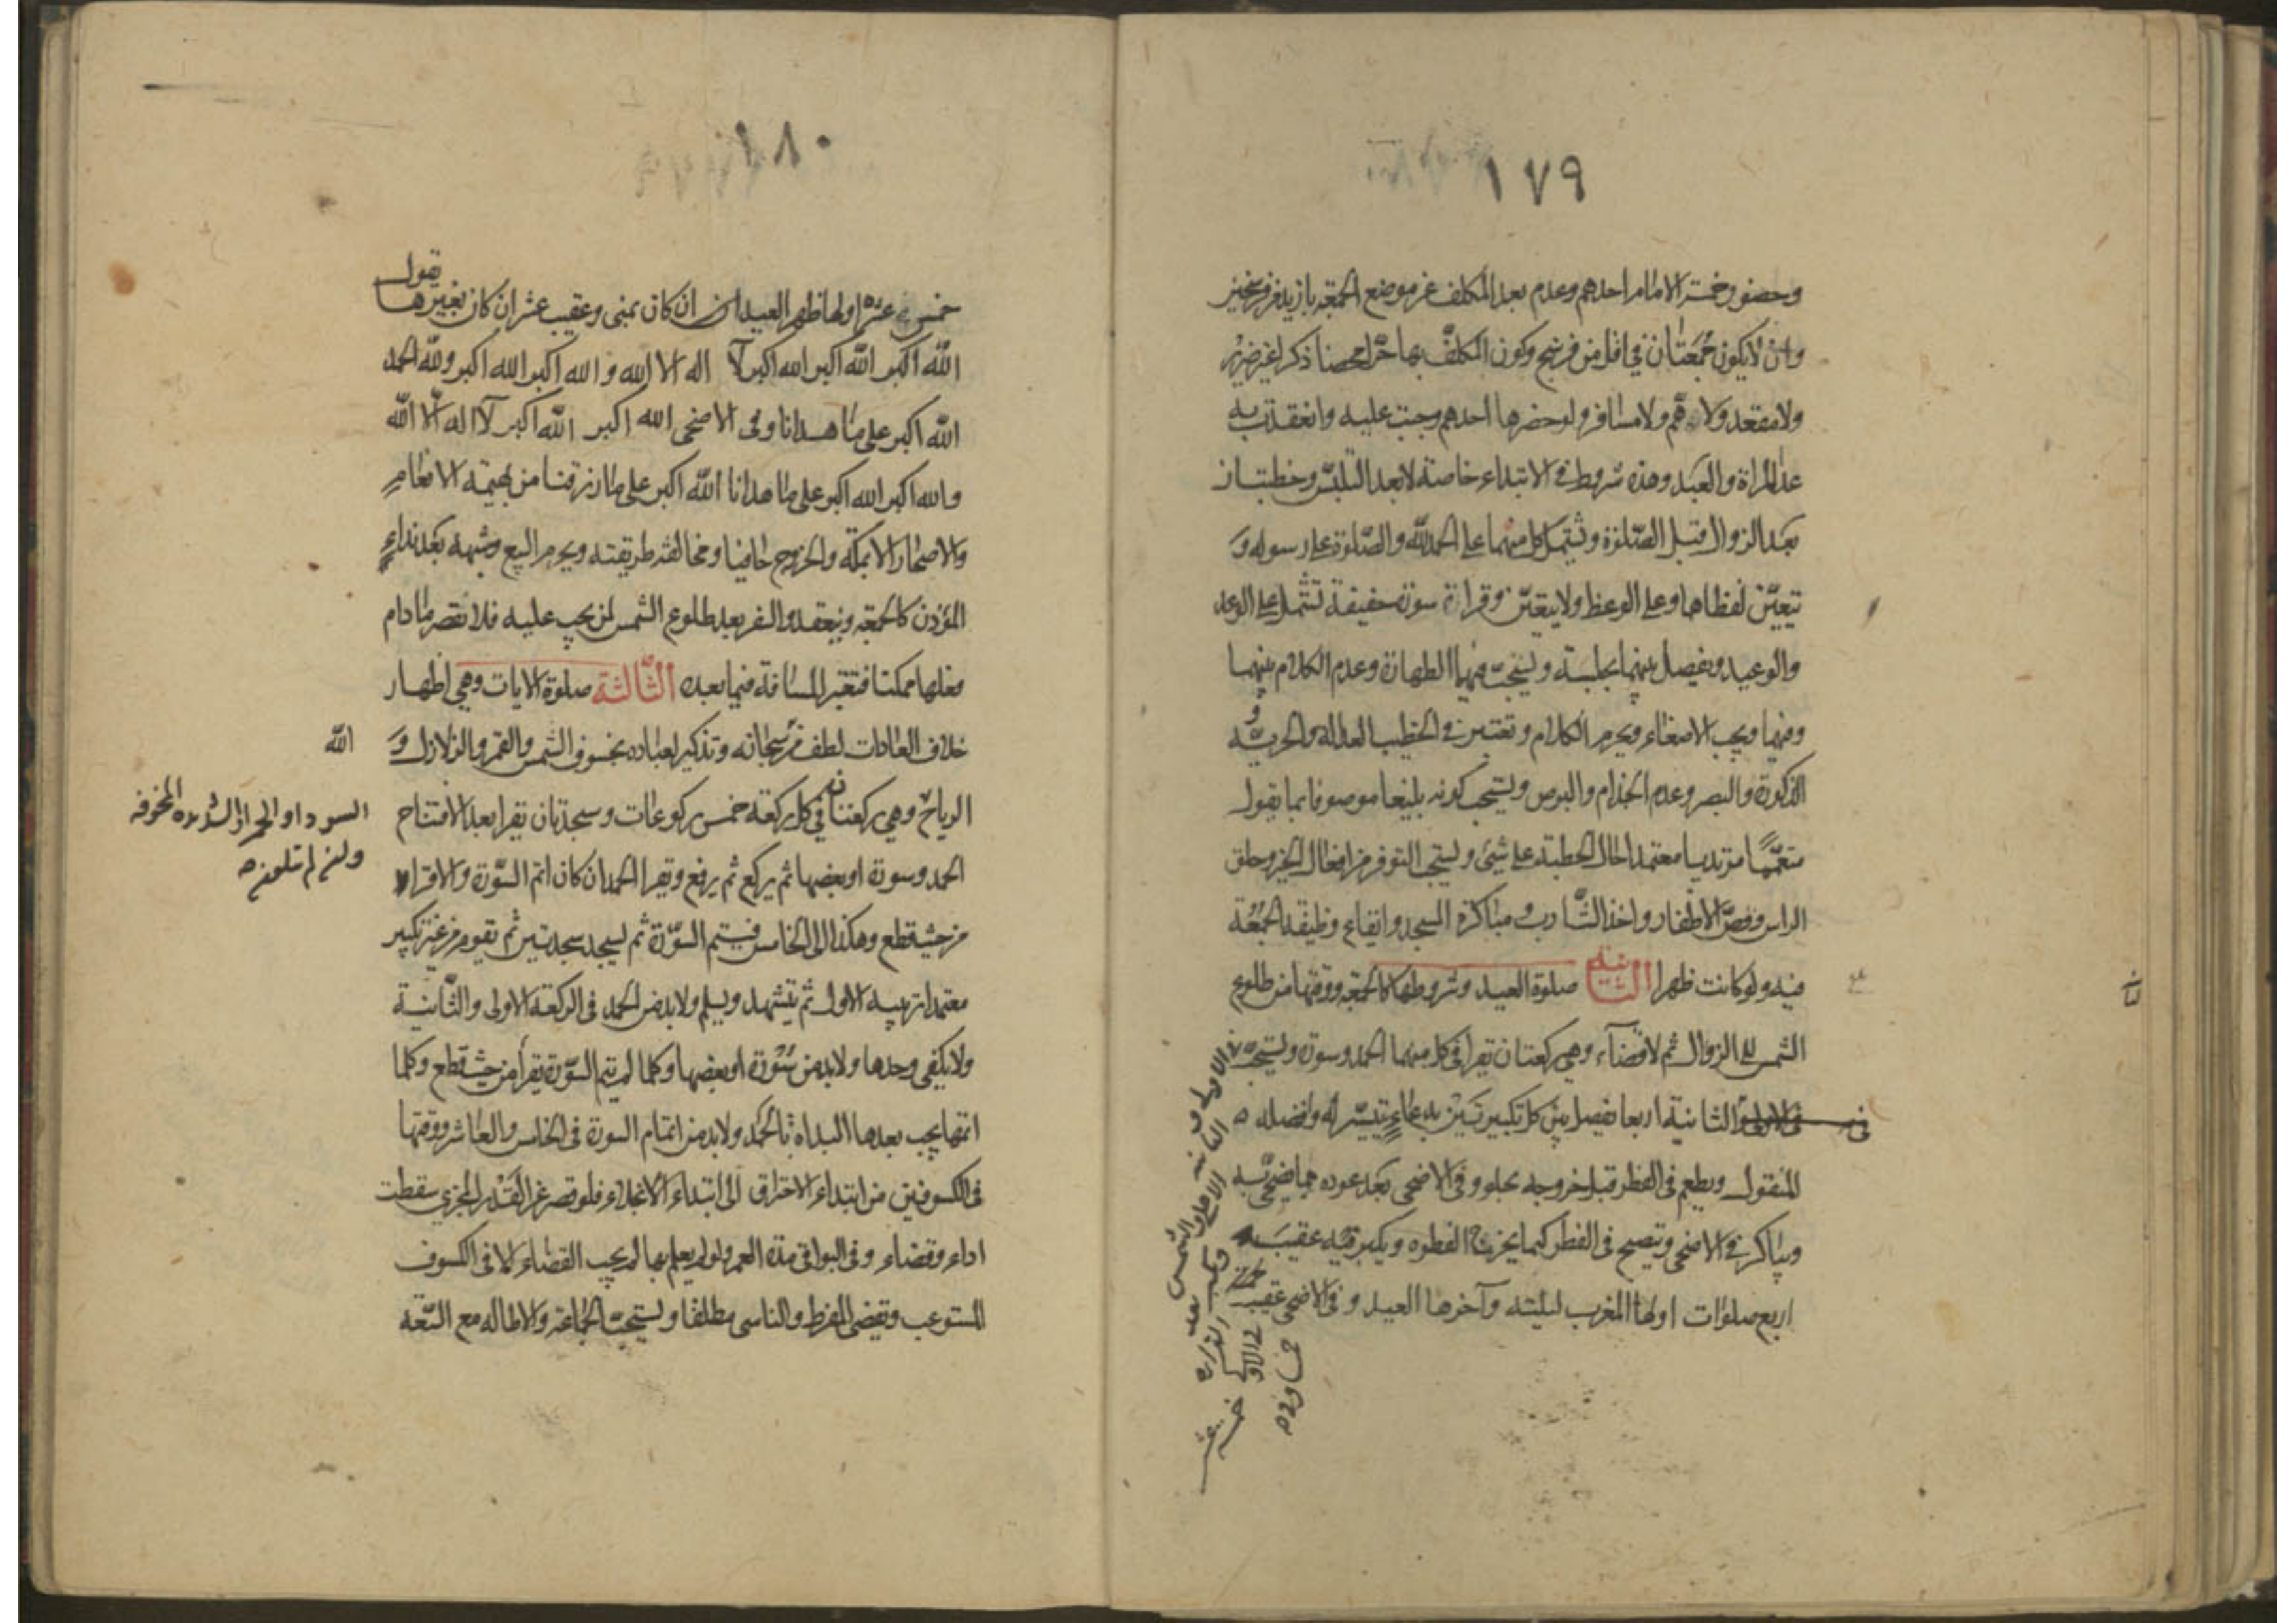 ١٧٩
وحضور خمسة الامام احدهم وعدم بعد المكلف عن موضع الجمعة بازيد من فرسخين
وان لا يكون جمعتان في اقل من فرسخ وكون المكلف بها حرا محضا ذكرا غير ضرير
ولا مقعد ولا هم ولا مسافر ولو حضرها احدهم وجبت عليه وانعقدت به
عدا المراة والعبد وهذه شروط في الابتداء خاصة لا بعد التلبس وخطبتان
بعد الزوال قبل الصلوة وتشتمل كل منهما على الحمد لله والصلوة على رسوله و
تتعين لفظاهما وعلى الوعظ ولا يتعين وقراة سورة خفيفة تشتمل على الوعد
والوعيد ويفصل بينهما بجلسة ويستحب فيها الطهارة وعدم الكلام بينهما
وفيهما ويجب الاصغاء ويحرم الكلام وتعتبر في الخطيب العدالة والحرية و
الذكورة والبصر وعدم الجذام والبرص ويستحب كونه بليغا موصوفا بما يقول
متعمما مرتديا معتمدا حال الخطبة على شيئ ويستحب التوفر من افعال الخير وحلق
الراس وقص الاظفار واخذ الشارب و مباكرة المسجد وايقاع وظيفة الجمعة
فيه ولو كانت ظهرا الثانية صلوة العيد وشروطها كالجمعة ووقتها من طلوع
الشمس الى الزوال ثم لا قضآء وهي ركعتان يقرا في كل منهما الحمد وسورة ويستحب
في الاولى والثانية اربعا يفصل بين كل تكبيرتين بدعاء يتيسر له وافضله
المنقول ويطعم في الفطر قبل خروجه بحلو وفي الاضحى بعد عوده مما يضحي به
ويباكر في الاضحى وتصبح في الفطر كيما يخرج الفطره ويكبر فيه عقيب
اربع صلوات اولها المغرب ليلته وآخرها العيد و في الاضحى عقيب
١٨٠
خمس عشرة اولها ظهر العيد ان كان بمنى وعقيب عشر ان كان بغيرها يقول
الله اكبر الله اكبر الله اكبر لآ اله الا الله و الله اكبر الله اكبر ولله الحمد
الله اكبر على ما هدانا وفي الاضحى الله اكبر الله اكبر لآ اله الا الله
والله اكبر الله اكبر على ما هدانا الله اكبر على ما رزقنا من بهيمة الانعام
والاصحار الا بمكة والخروج حافيا ومخالفة طريقته ويحرم البيع وشبهه بعد نداء
المؤذن كالجمعة والسفر بعد طلوع الشمس لمن يجب عليه فلا تقصر ما دام
فعلها ممكنا فتعتبر المسافة فيما بعده الثالثة صلوة الايات وهي اظهار
خلاف العادات لطف من سبحانه وتذكير لعباده بخسوف الشمس والقمر والزلازل و
الله
الرياح وهي ركعتان في كل ركعة خمس ركوعات وسجدتان يقرا بعد الافتتاح
السودا والحمرا الشديده المخوفه
الحمد وسورة او بعضها ثم يركع ثم يرفع ويقرا الحمد ان كان اتم السورة والا قرا
من حيث قطع وهكذا الى الخامس فيتم السورة ثم يسجد سجدتين ثم يقوم من غير تكبير
معتمدا ترتيبه الاول ثم يتشهد ويسلم ولابد من الحمد في الركعة الاولى والثانية
ولا يكفي وحدها ولابد من سورة او بعضها وكلما لم يتم السورة يقرا من حيث قطع وكلما
اتمها يجب بعدها البداه بالحمد ولابد من اتمام السورة في الخامس والعاشر ووقتها
في الكسوفين من ابتداء الاحتراق الى ابتداء الانجلاء فلو قصر عن القدر المجزي سقطت
اداء وقضاء وفي البواقي مدة العمر ولو لم يعلم بها لم يجب القضاء الا في الكسوف
المستوعب ويقضي المفرط والناسي مطلقا ويستحب الجماعة والاطاله مع السعة